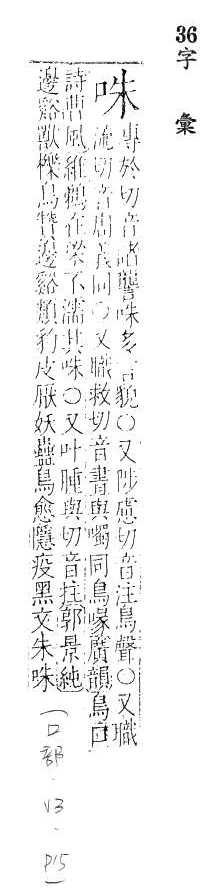 36字彙
咮
專於切音諸讋咮多言貌○又陟慮切音注鳥聲○又職
流切音周義同○又職救切音晝與噣同鳥喙廣韻鳥口
詩曹風維鵜在梁不濡其咮○又叶腫與切音拄郭景純
邊谿獸櫟鳥贊邊谿類豹皮厭妖蠱鳥愈隱疫黑文朱咮
(口部.V3.P15)